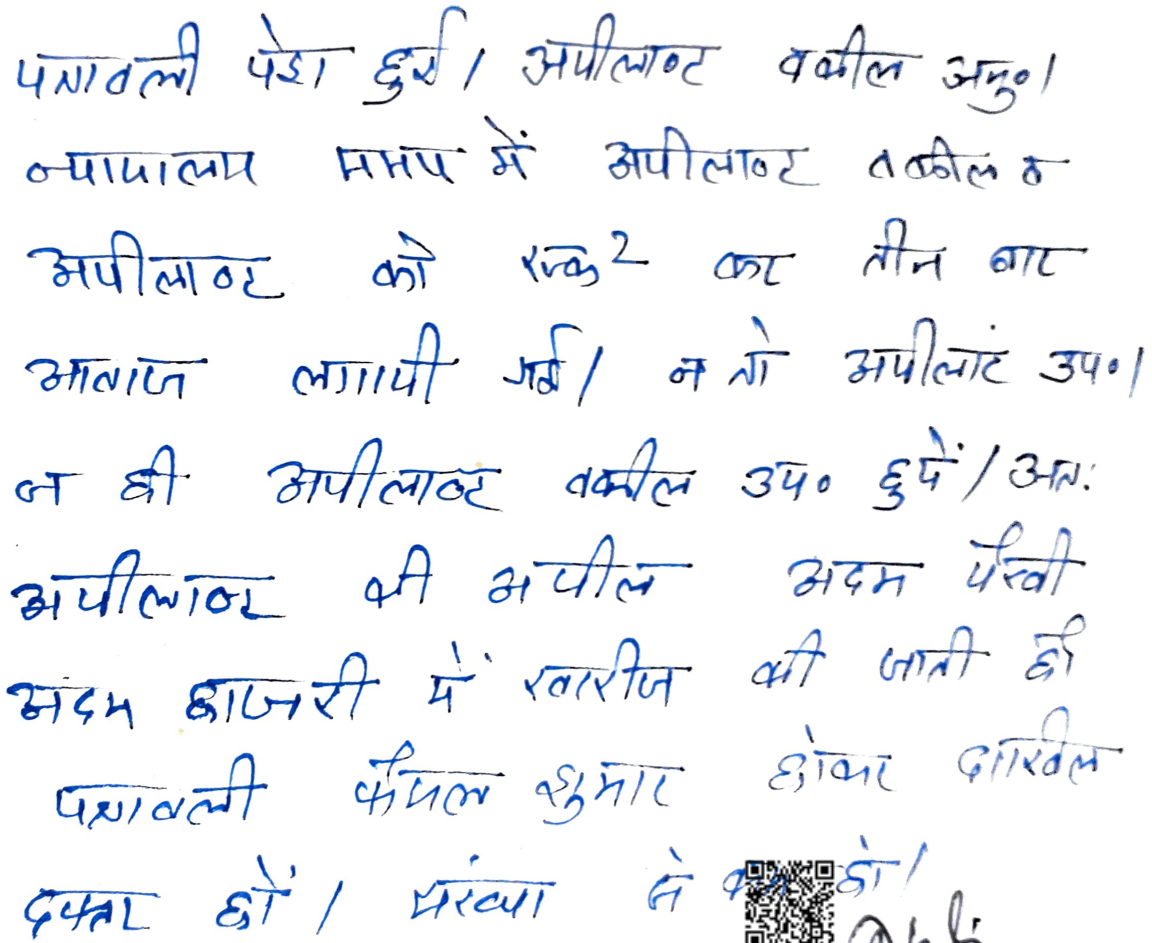 पत्रावली पेश हुई। अपीलाण्ट वकील अनु०।
न्यायालय समय में अपीलाण्ट वकील व
अपीलाण्ट को एक2 कर तीन बार
आवाज लगायी गई। न तो अपीलांट उप०।
न ही अपीलाण्ट वकील उप० हुयें। अतः
अपीलाण्ट की अपील अदम पैरवी
अदम हाजरी में खारीज की जाती है
पत्रावली फैसल शुमार होकर दाखिल
दफ्तर हों। संख्या से कम हो।